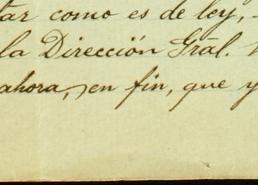 tar como es de ley,
la Dirección Gral.
ahora, en fin, que y